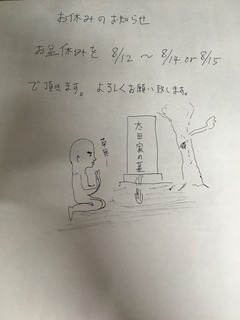 お休みのお知らせ
お盆休みを 8/12 ~ 8/14 or 8/15
で頂きます。よろしくお願い致します。
太田家の墓